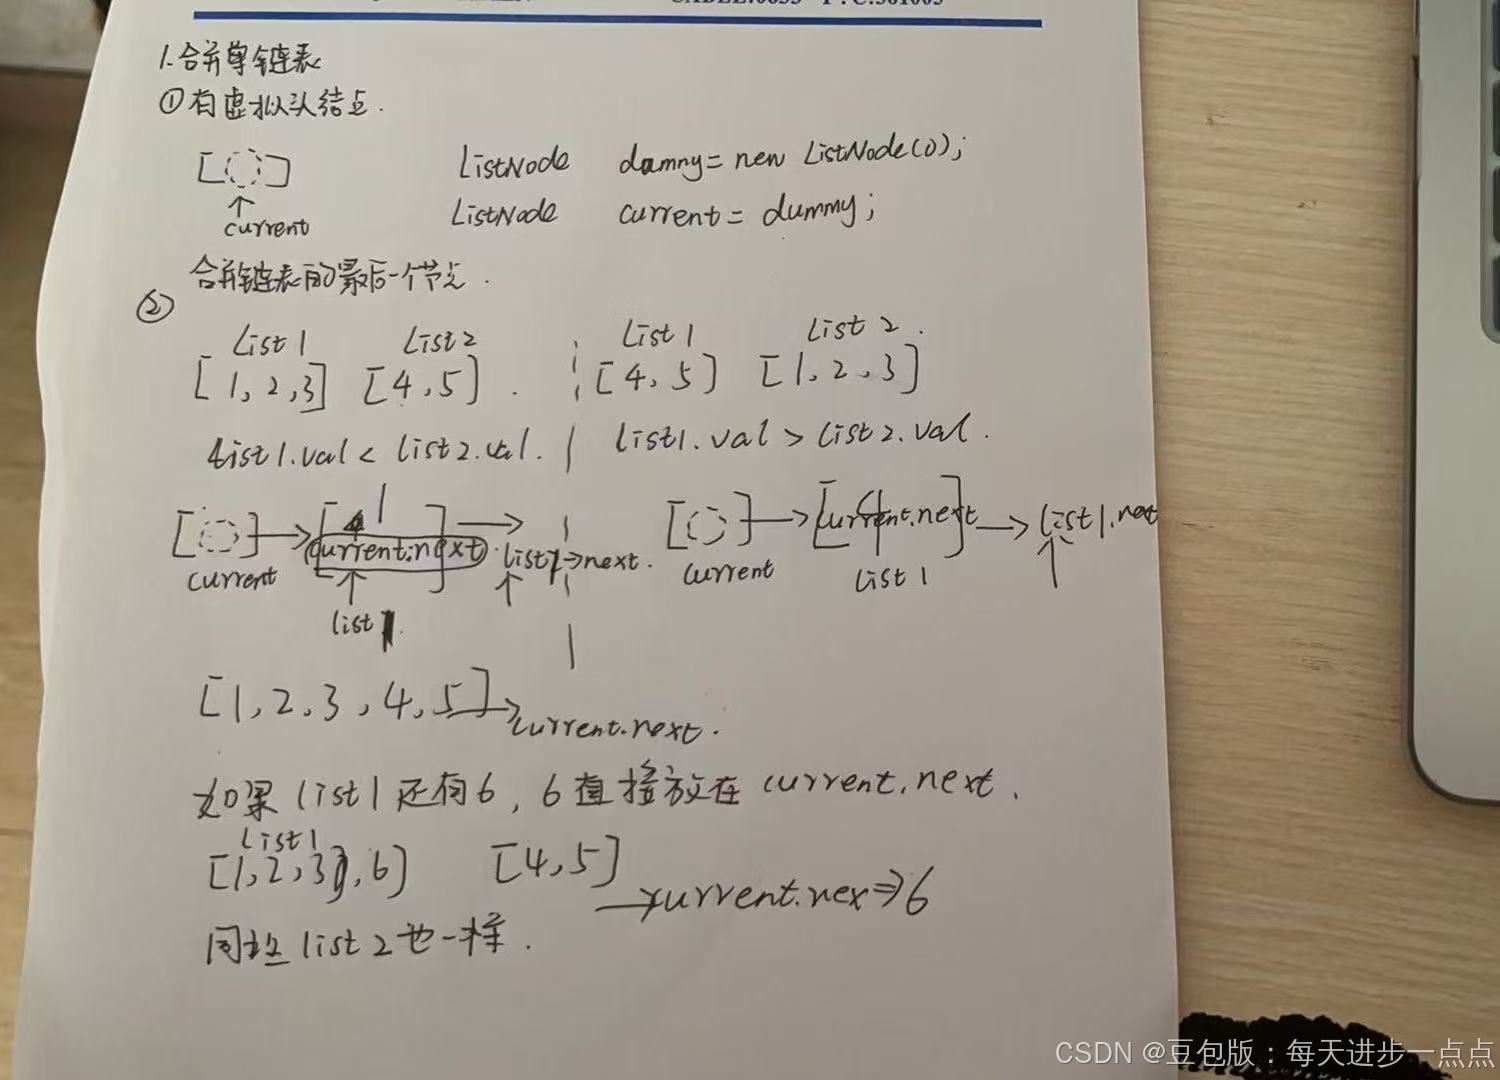 1.合并单链表
①有虚拟头结点.
ListNode damny = new ListNode(0);
current
ListNode current = dummy;
合并链表的最后一个节点.
②
List1 List2 List1 List2.
[1,2,3] [4,5]. [4,5] [1,2,3]
List1.val < List2.val. list1.val > List2.val.
[ ] → [ 1 ] → [ ] → [current.next] → list1.next
current.next list1→next.
current current list1
list1.
[1,2,3,4,5] → current.next.
如果list1还有6,6直接放在current.next.
List1
[1,2,3,6] [4,5]
→current.nex⇒6
同理list2也一样.
CSDN @豆包版：每天进步一点点